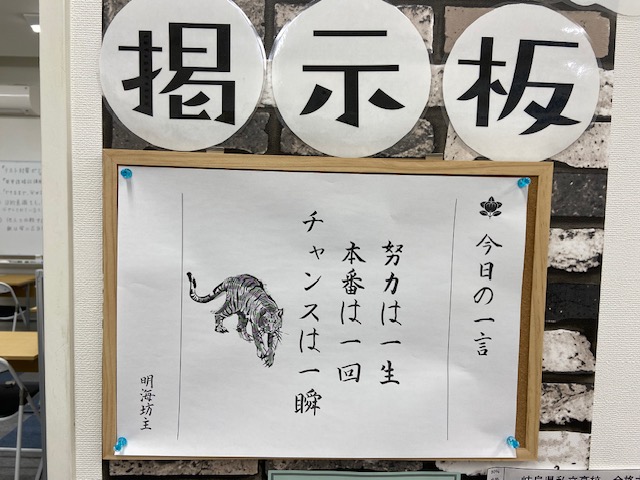 掲示板
今日の一言
努力は一生
本番は一回
チャンスは一瞬
明海坊主